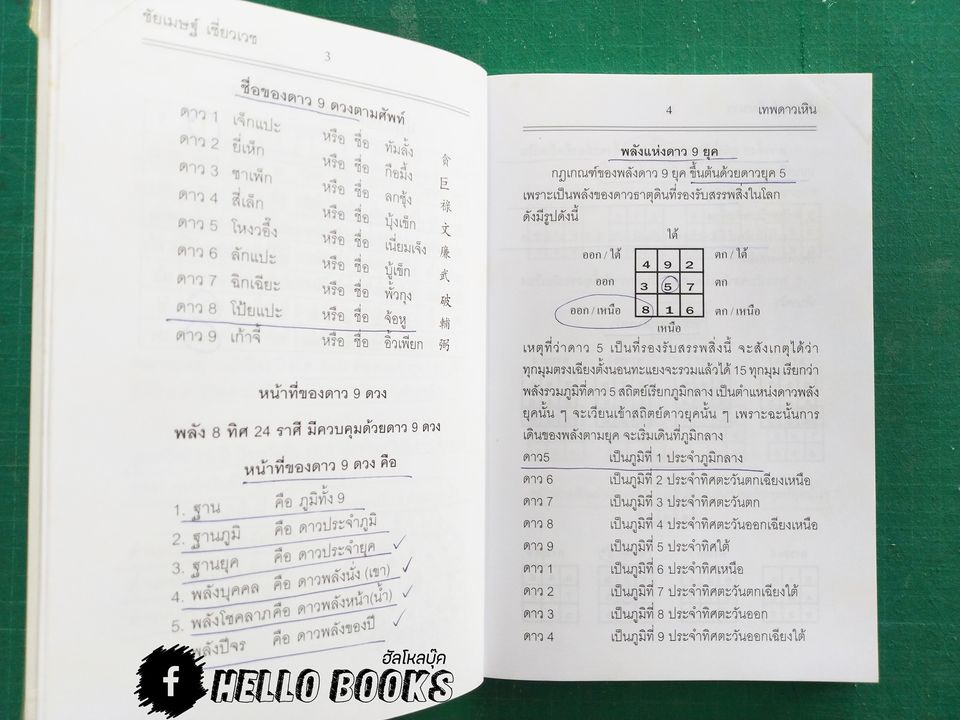 ชัยเมษฐ์ เชี่ยวเวช
3
ชื่อของดาว 9 ดวงตามศัพท์
ดาว 1 เจ็กแปะ หรือ ชื่อ ทัมลั้ง 貪
ดาว 2 ยี่เห็ก หรือ ชื่อ กือมึ้ง 巨
ดาว 3 ซาเพ็ก หรือ ชื่อ ลกชุ้ง 祿
ดาว 4 สี่เล็ก หรือ ชื่อ บุ้งเข็ก 文
ดาว 5 โหงวอึ๊ง หรือ ชื่อ เนี่ยมเจ็ง 廉
ดาว 6 ลักแปะ หรือ ชื่อ บู้เข็ก 武
ดาว 7 ฉิกเฉียะ หรือ ชื่อ พั้วกุง 破
ดาว 8 โป้ยแปะ หรือ ชื่อ จ้อหู 輔
ดาว 9 เก้าจี้ หรือ ชื่อ อิ้วเพียก 弼
หน้าที่ของดาว 9 ดวง
พลัง 8 ทิศ 24 ราศี มีควบคุมด้วยดาว 9 ดวง
หน้าที่ของดาว 9 ดวง คือ
1. ฐาน คือ ภูมิทั้ง 9
2. ฐานภูมิ คือ ดาวประจำภูมิ
3. ฐานยุค คือ ดาวประจำยุค
4. พลังบุคคล คือ ดาวพลังนั่ง (เขา)
5. พลังโชคลาภคือ ดาวพลังหน้า(น้ำ)
พลังปีจร คือ ดาวพลังของปี
ฮัลโหลบุ๊ค
f HELLO BOOKS
4 เทพดาวเหิน
พลังแห่งดาว 9 ยุค
กฎเกณฑ์ของพลังดาว 9 ยุค ขึ้นต้นด้วยดาวยุค 5
เพราะเป็นพลังของดาวธาตุดินที่รองรับสรรพสิ่งในโลก
ดังมีรูปดังนี้
ใต้
ออก / ใต้ 4 9 2 ตก / ใต้
ออก 3 5 7 ตก
ออก / เหนือ 8 1 6 ตก / เหนือ
เหนือ
เหตุที่ว่าดาว 5 เป็นที่รองรับสรรพสิ่งนี้ จะสังเกตุได้ว่า
ทุกมุมตรงเฉียงตั้งนอนทะแยงจะรวมแล้วได้ 15 ทุกมุม เรียกว่า
พลังรวมภูมิที่ดาว 5 สถิตย์เรียกภูมิกลาง เป็นตำแหน่งดาวพลัง
ยุคนั้น ๆ จะเวียนเข้าสถิตย์ดาวยุคนั้น ๆ เพราะฉะนั้นการ
เดินของพลังตามยุค จะเริ่มเดินที่ภูมิกลาง
ดาว5 เป็นภูมิที่ 1 ประจำภูมิกลาง
ดาว 6 เป็นภูมิที่ 2 ประจำทิศตะวันตกเฉียงเหนือ
ดาว 7 เป็นภูมิที่ 3 ประจำทิศตะวันตก
ดาว 8 เป็นภูมิที่ 4 ประจำทิศตะวันออกเฉียงเหนือ
ดาว 9 เป็นภูมิที่ 5 ประจำทิศใต้
ดาว 1 เป็นภูมิที่ 6 ประจำทิศเหนือ
ดาว 2 เป็นภูมิที่ 7 ประจำทิศตะวันตกเฉียงใต้
ดาว 3 เป็นภูมิที่ 8 ประจำทิศตะวันออก
ดาว 4 เป็นภูมิที่ 9 ประจำทิศตะวันออกเฉียงใต้